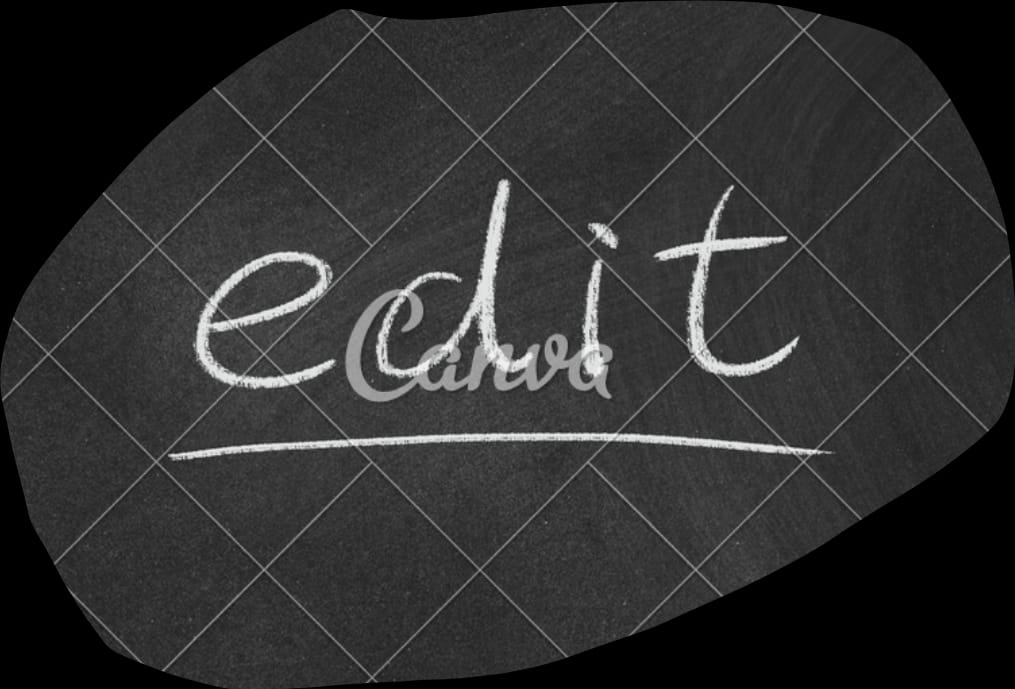 edit
Canva